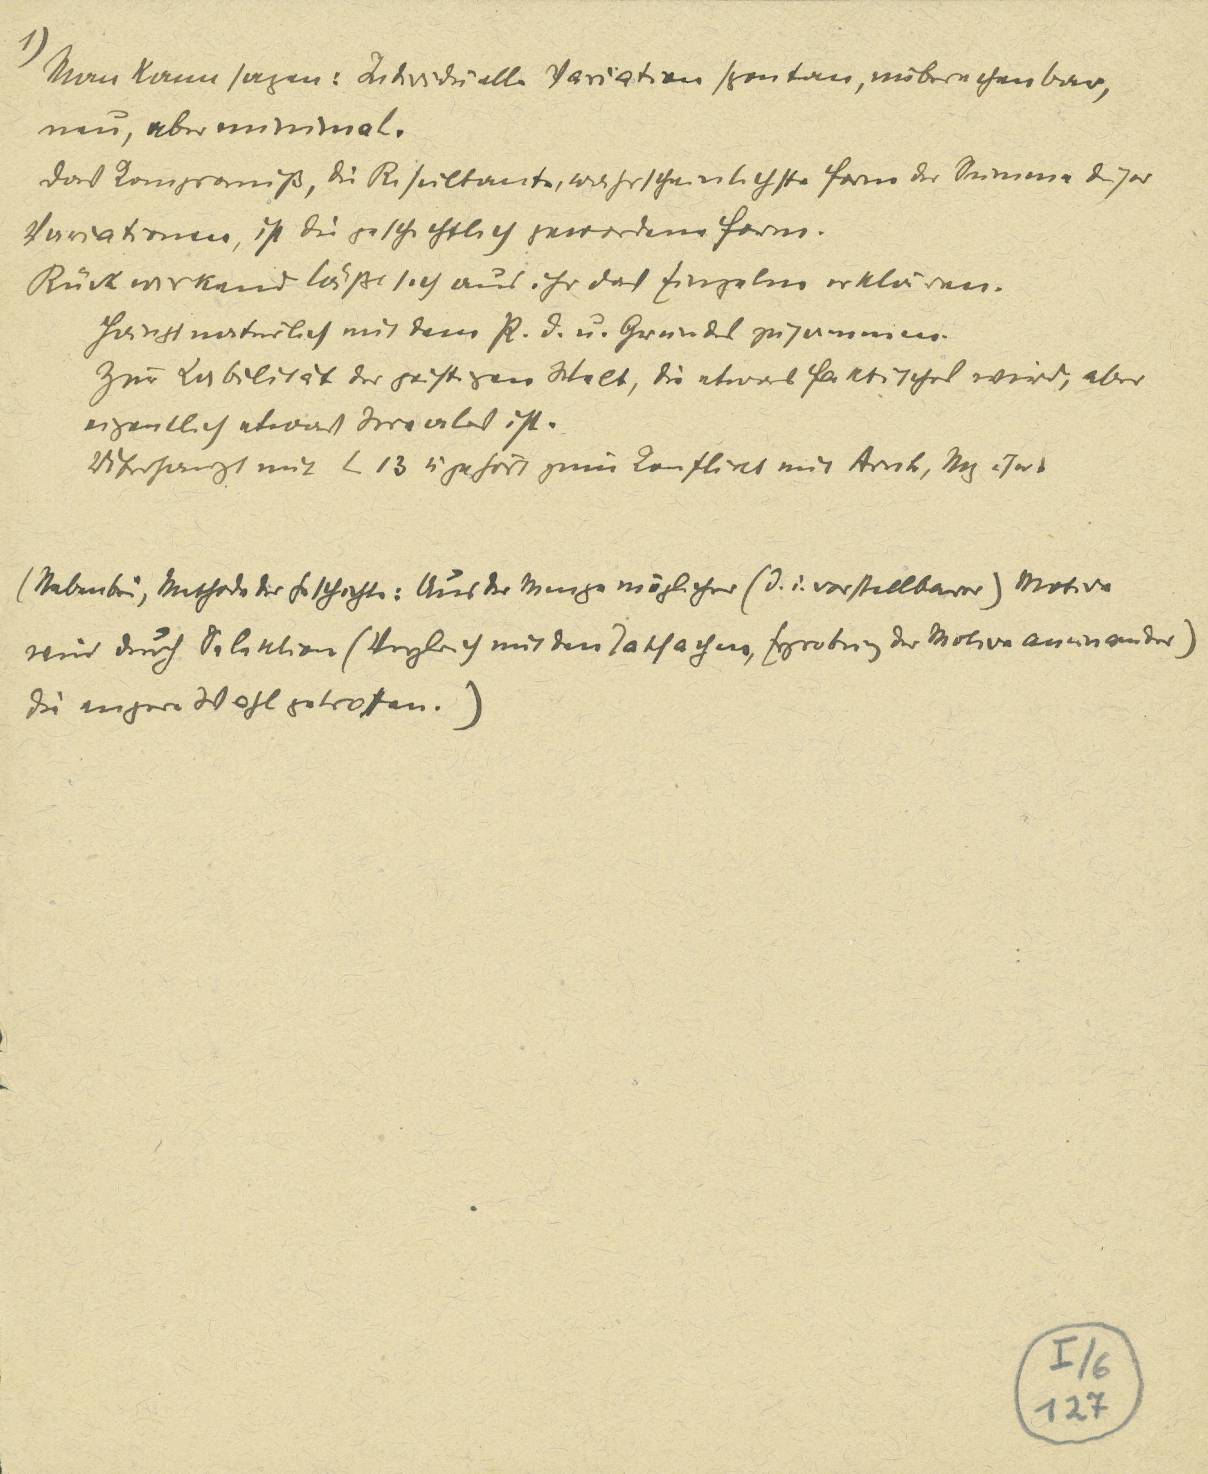 1)
Man kann sagen: Individuelle Variation spontan, unberechenbar,
neu, aber minimal.
Das Kompromiß, die Resultante, wahrscheinlichste Form der Summe dieser
Variationen, ist die geschichtlich gewordene Form.
Rückwirkend läßt sich aus ihr das Einzelne erklären.
Hängt natürlich mit dem P. d. u. Grundes zusammen.
Zur Labilität der geistigen Welt, die etwas Faktisches wird, aber
eigentlich etwas Irreales ist.
mit L 13 u gehört zum Konflikt mit
(Nebenbei, Methode der Geschichte: Aus der Menge möglicher (d. i. vorstellbarer) Motive
wird durch Selektion (Vergleich mit den Tatsachen, Erprobung der Motive aneinander)
die engere Wahl getroffen.)
I/6
127